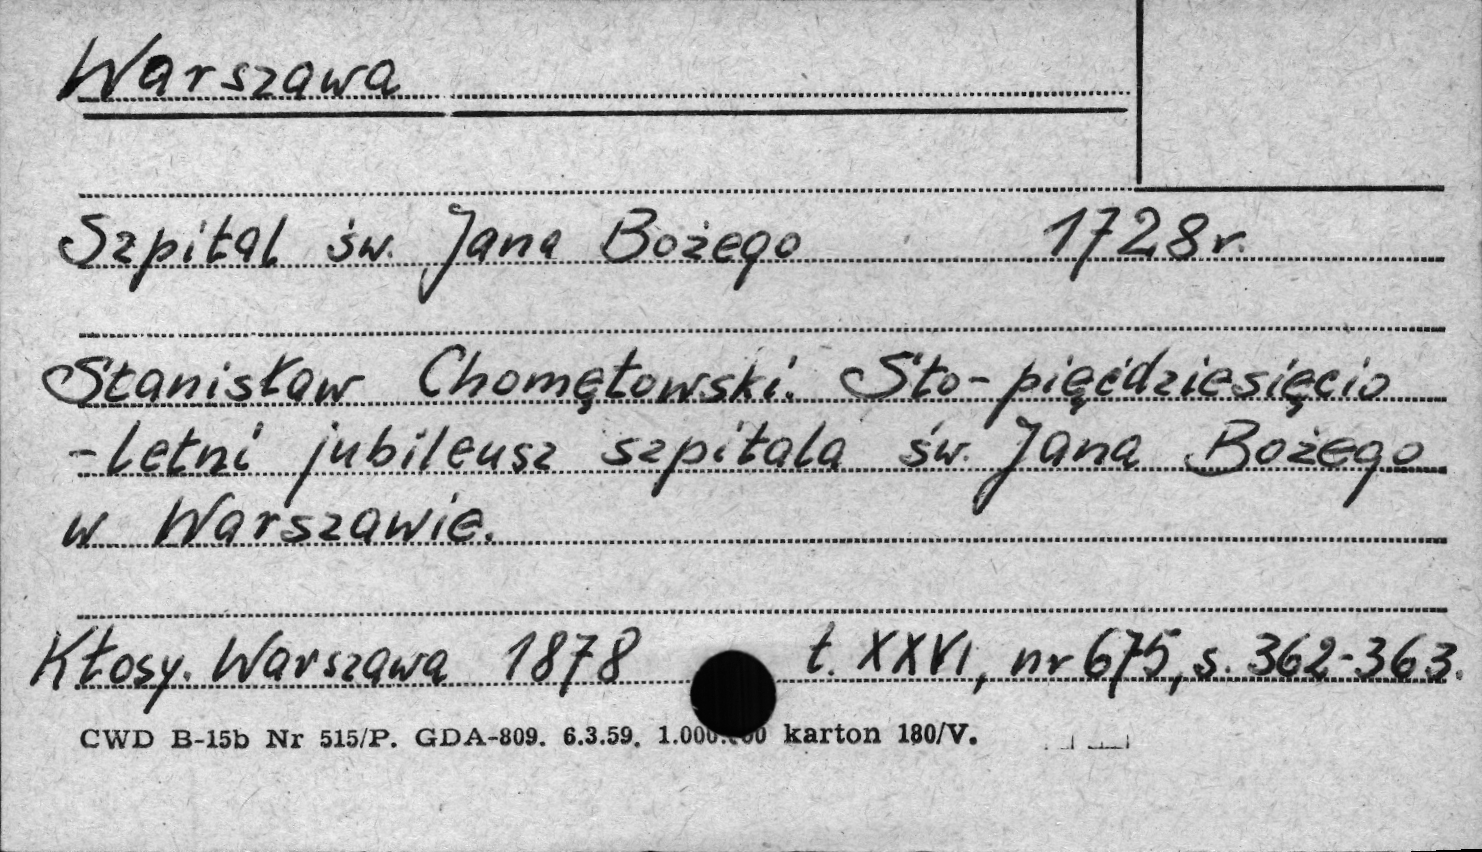 Warszawa
Szpital św. Jana Bożego 1728 r.
Stanisław Chomętowski. Sto-pięćdziesięcio
-letni jubileusz szpitala św. Jana Bożego
w Warszawie.
Kłosy. Warszawa 1878 t. XXVI, nr 675, s. 362-363.
CWD B-15b Nr 515/P. GDA-809. 6.3.59. karton 180/V.